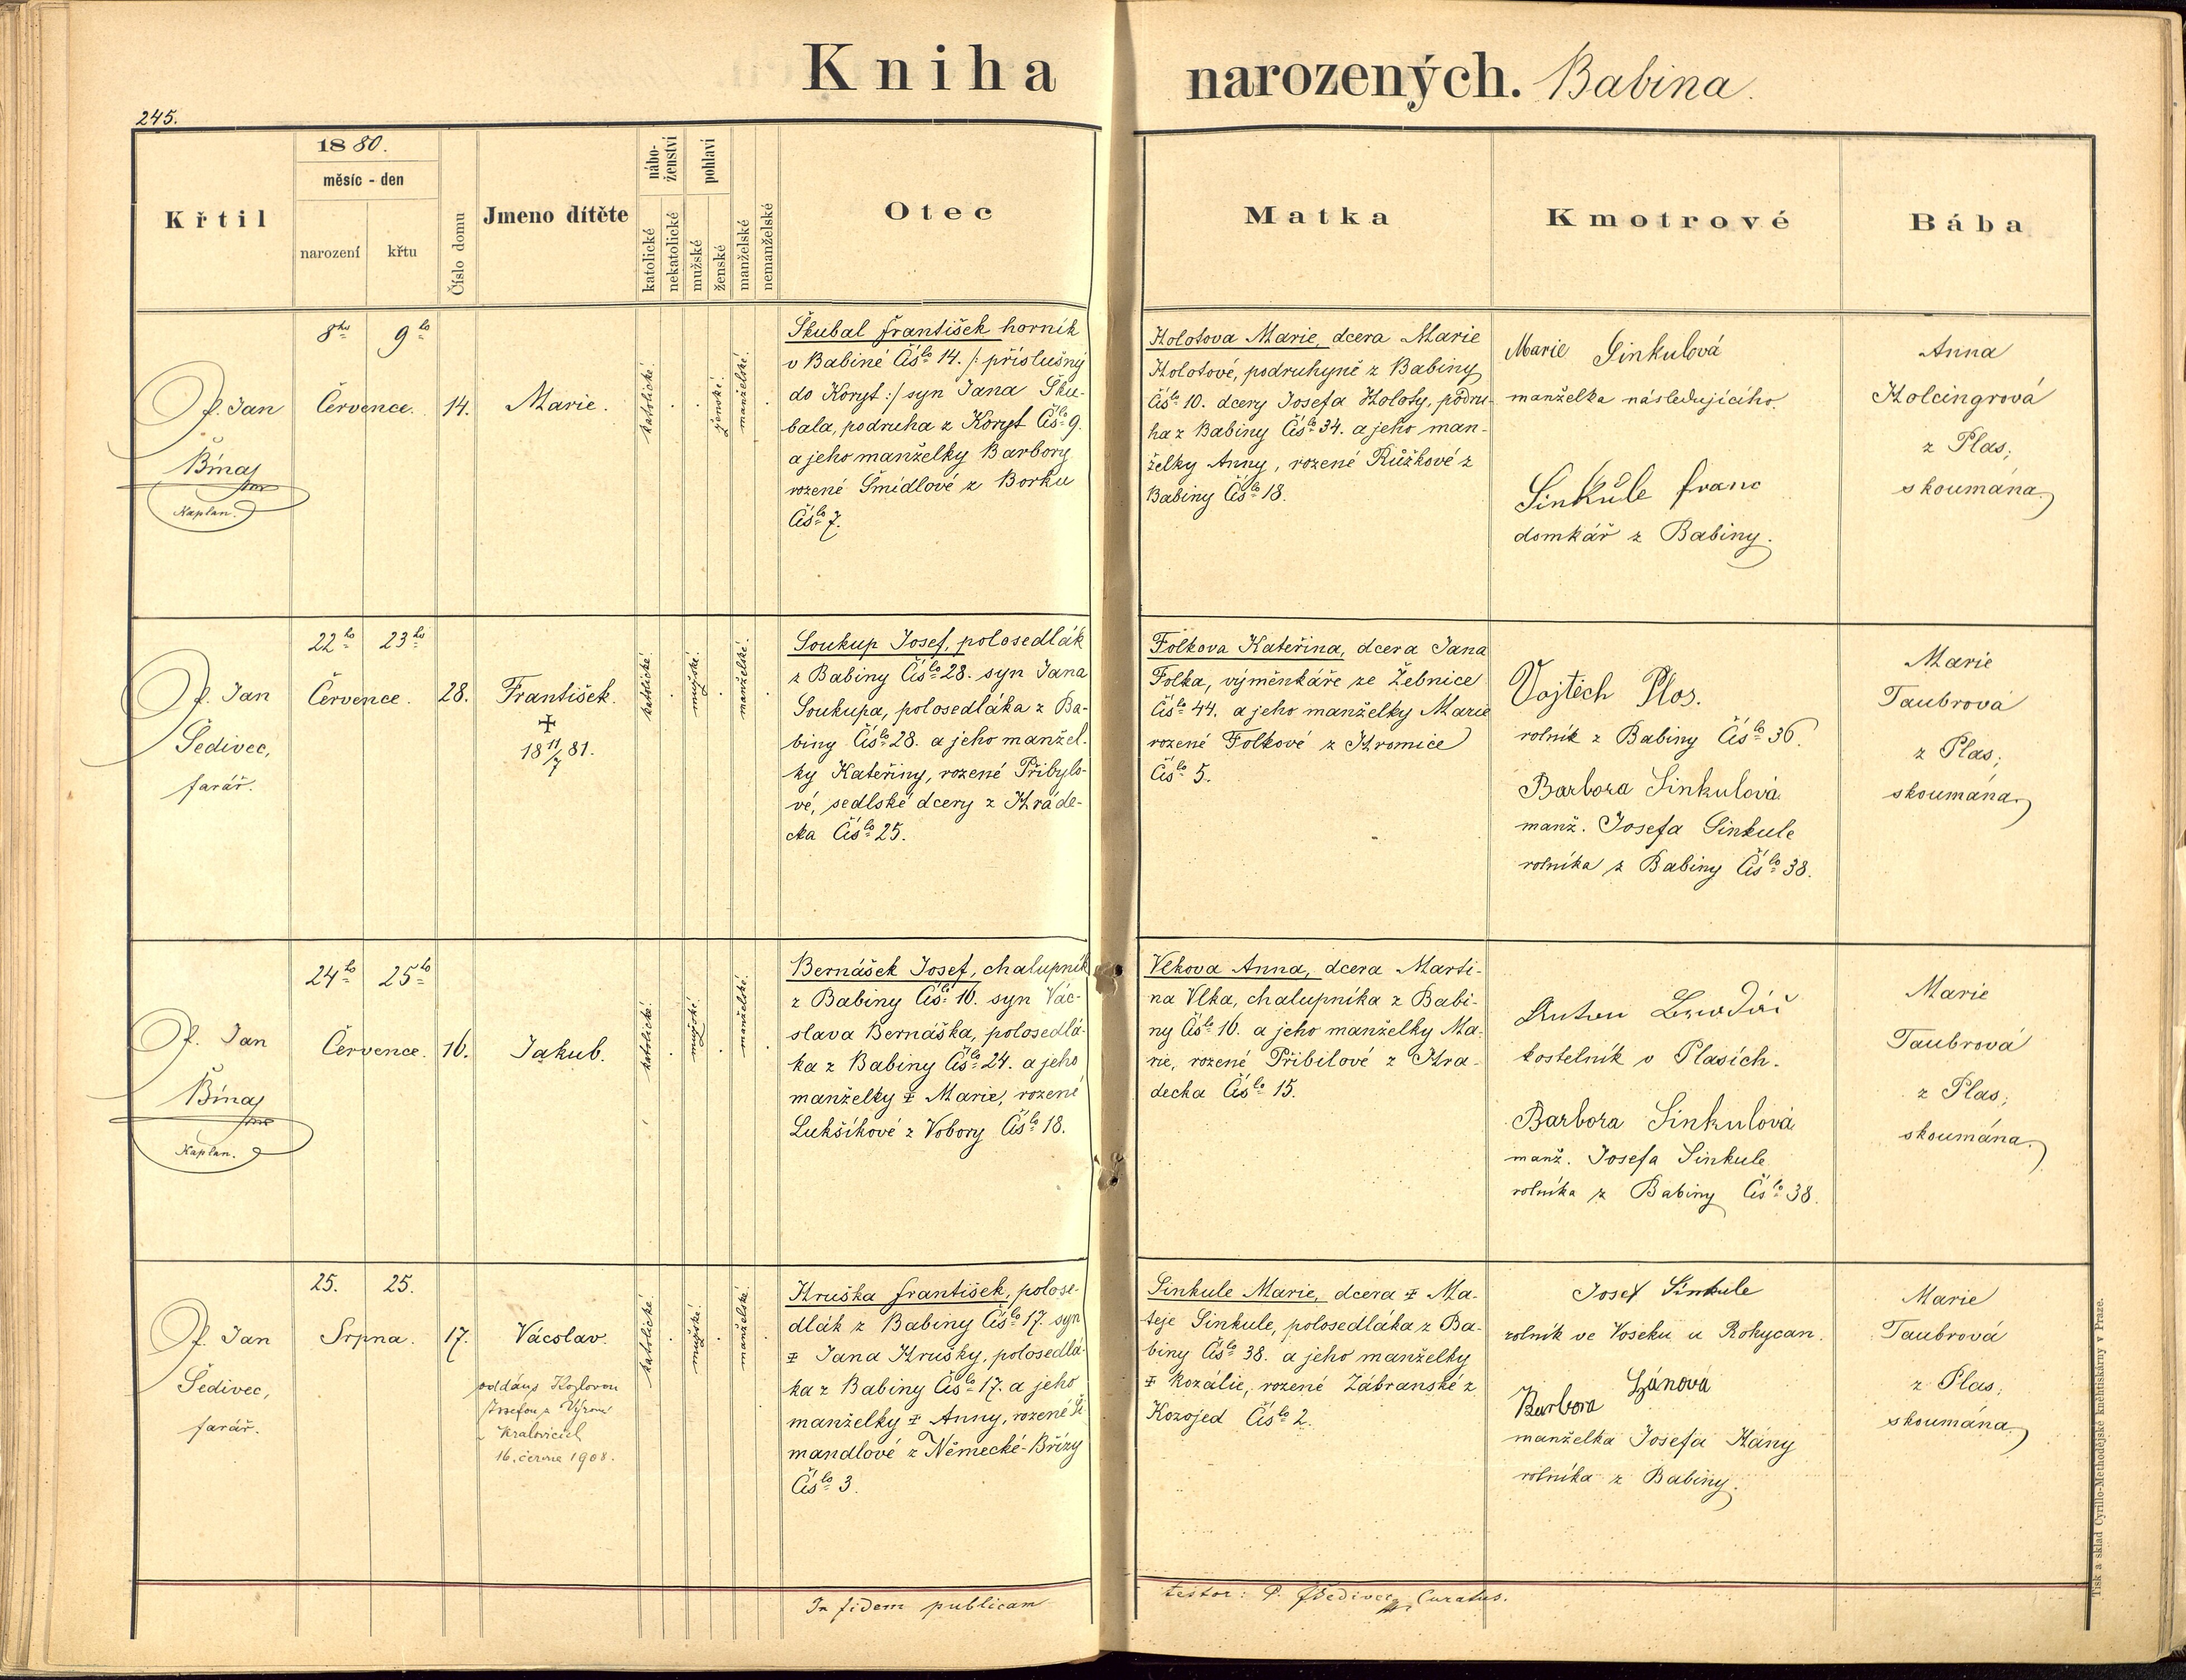 Kniha narozených. Babina.
245.
Křtil
1880.
měsíc - den
narození
křtu
Číslo domu
Jmeno dítěte
nábo-
ženství
katolické
nekatolické
pohlaví
mužské
ženské
manželské
nemanželské
Otec
Matka
Kmotrové
Bába
P. Jan
Bínaj
Kaplan.
8ho
9ho
Července.
14.
Marie.
katolické.
ženské.
manželské.
Škubal František horník
v Babině Čís lo 14. /: příslušný
do Koryt :/ syn Jana Šku-
bala, podruha z Koryt Čís lo 9.
a jeho manželky Barbory
rozené Šmídlové z Borku
Čís lo 7.
Holotova Marie, dcera Marie
Holotové, podruhyně z Babiny
Čís lo 10. dcery Josefa Holoty, podru-
ha z Babiny Čís lo 34. a jeho man-
želky Anny, rozené Růžkové z
Babiny Čís lo 18.
Marie Sinkulová
manželka následujícího.
Sinkůle Franc
domkář z Babiny.
Anna
Holcingrová
z Plas,
skoumána.
P. Jan
Šedivec,
farář.
22ho
23ho
Července.
28.
František.
18 11/7 81.
katolické.
mužské.
manželské.
Soukup Josef, polosedlák
z Babiny Čís lo 28. syn Jana
Soukupa, polosedláka z Ba-
biny Čís lo 28. a jeho manžel-
ky Kateřiny, rozené Přibylo-
vé, sedlské dcery z Hráde-
cka Čís lo 25.
Folkova Kateřina, dcera Jana
Folka, výměnkáře ze Žebnice
Čís lo 44. a jeho manželky Marie
rozené Folkové z Hromice
Čís lo 5.
Vojtěch Plos.
rolník z Babiny Čís lo 36.
Barbora Sinkulová
manž. Josefa Sinkule
rolníka z Babiny Čís lo 38.
Marie
Taubrová
z Plas,
skoumána.
P. Jan
Bínaj
Kaplan.
24ho
25ho
Července.
16.
Jakub.
katolické.
mužské.
manželské.
Bernášek Josef, chalupník
z Babiny Čís lo 16. syn Vác-
slava Bernáška, polosedlá-
ka z Babiny Čís lo 24. a jeho
manželky ‡ Marie, rozené
Lukšíkové z Vobory Čís lo 18.
Vlkova Anna, dcera Marti-
na Vlka, chalupníka z Babi-
ny Čís lo 16. a jeho manželky Ma-
rie, rozené Přibilové z Hra-
decka Čís lo 15.
Anton
kostelník v Plasích.
Barbora Sinkulová
manž. Josefa Sinkule
rolníka z Babiny Čís lo 38.
Marie
Taubrová
z Plas,
skoumána.
P. Jan
Šedivec,
farář.
25.
25.
Srpna.
17.
Vácslav.
oddán s Kozlovou
Josefou z Výrova
v Kralovicích
16. června 1908.
katolické.
mužské.
manželské.
Hruška František, polose-
dlák z Babiny Čís lo 17. syn
‡ Jana Hrušky, polosedlá-
ka z Babiny Čís lo 17. a jeho
manželky ‡ Anny, rozené Ši
mandlové z Německé-Břízy
Čís lo 3.
Sinkule Marie, dcera ‡ Ma-
teje Sinkule, polosedláka z Ba-
biny Čís lo 38. a jeho manželky
‡ Rozálie, rozené Zábranské z
Kozojed Čís lo 2.
Josef Sinkule
rolník ve Voseku u Rokycan.
Hánová
Barbora
manželka Josefa Hány
rolníka z Babiny.
Marie
Taubrová
z Plas,
skoumána.
In fidem publicam
testor: P. JŠedivec, Curatus.
Tisk a sklad Cyrillo-Methodějské knihtiskárny v Praze.